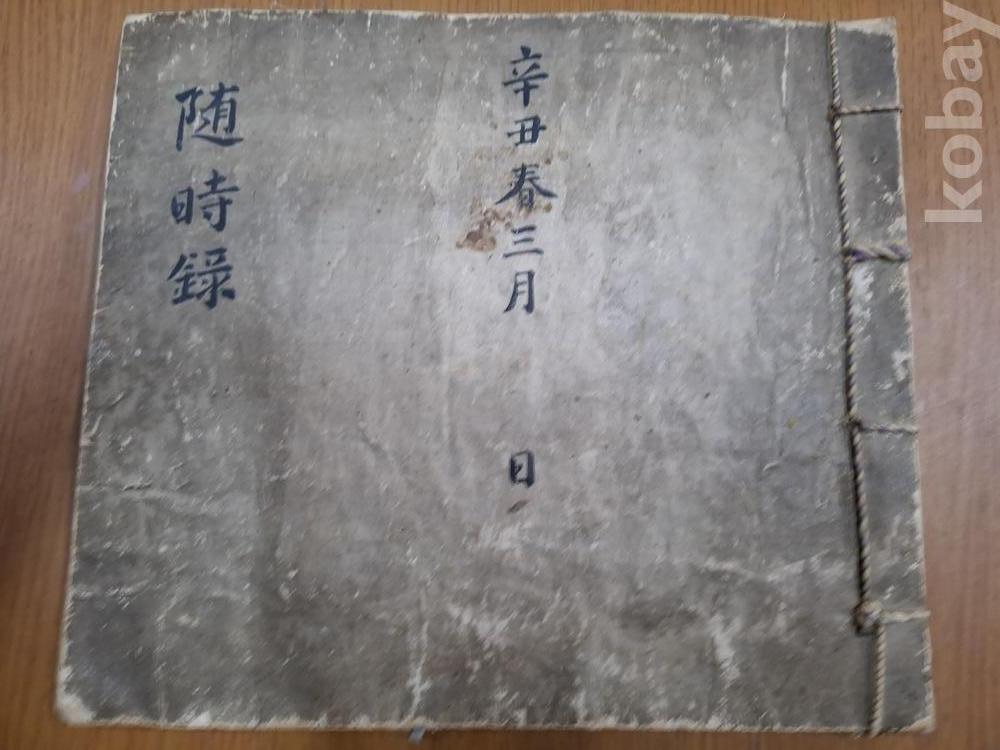 辛丑春三月 日
随時錄
kobay